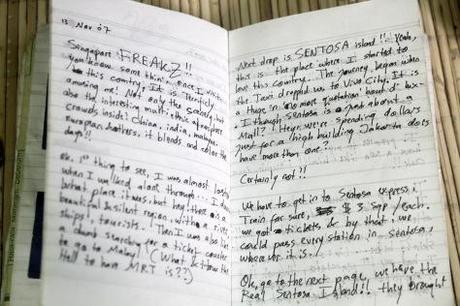 13 Nov 07
Singapore FREAKZ!!
you know some thin.. Once I visit
to this country, It is Terribly
amusing me! Not only the scenery, but
also the interesting multi ethnic atmosphere
crowds inside! China, india, malay,
european brothers, it blends, and color the
days!!
Ok, 1st thing to see, I was almost lost
when I walked alone through...
what place it was, but hey, there's a
beautiful resilent region, with a river,
ships, tourists. Then I was also like
a dumb searching for a ticket counter
to go to Malay! (What's the
Hall to have MRT is??)
Next drop is SENTOSA island!! Yeah,
this is the place where I started to
love this country. The journey began when
the Taxi dropped us to Vivo City. It is
a Huge in
I though Sentosa is just about
Mall? Then we're spending dollars
just for a high building Jakarta does
have more than one?
Certainly not!!
We have to get in to Sentosa express
Train for sure, $ 3 Sgp /each.
we got tickets & by that, we
could pass every station in Sentosa,
where ever it is.
Ok, go to the next page, we have the
Real Sentosa Island!! they brought